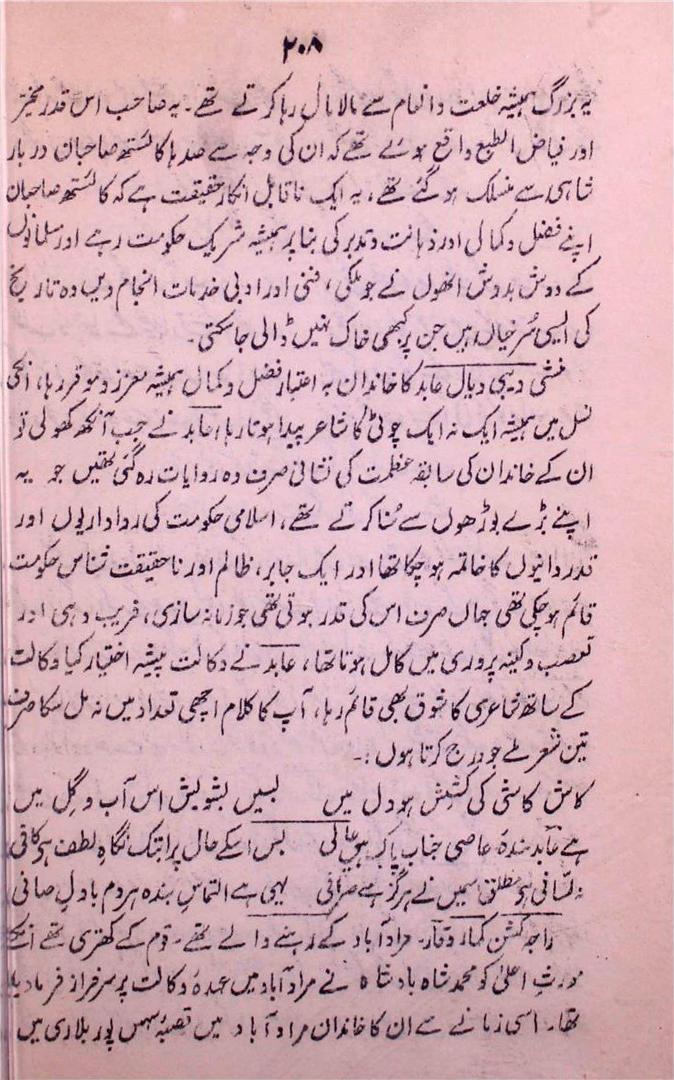 ۲۰۸
یہ بزرگ ہمیشہ خلعت وانعام سے مالا مال رہا کرتے تھے۔ یہ صاحب اس قدر مخیّر
اور فیاض الطبع واقع ہوئے تھے کہ ان کی وجہ سے صدہا کائستھ صاحبان دربار
شاہی سے منسلک ہوگئے تھے، یہ ایک ناقابل انکار حقیقت ہے کہ کائستھ صاحبان
اپنے فضل وکمال اور ذہانت وتدبر کی بنا پر ہمیشہ شریک حکومت رہے اور مسلمانوں
کے دوش بدوش انھوں نے جو ملکی، فنی اور ادبی خدمات انجام دیں وہ تاریخ
کی ایسی سُرخیاں ہیں جن پر کبھی خاک نہیں ڈالی جاسکتی۔
منشی دیبی دیال عابد کا خاندان بہ اعتبار فضل وکمال ہمیشہ معزز وموقر رہا، انکی
نسل میں ہمیشہ ایک نہ ایک چوٹی کا شاعر پیدا ہوتا رہا، عابد نے جب آنکھ کھولی تو
ان کے خاندان کی سابقہ عظمت کی نشانی صرف وہ روایات رہ گئی تھیں جو یہ
اپنے بڑے بوڑھوں سے سُنا کرتے تھے، اسلامی حکومت کی رواداریوں اور
قدردانیوں کا خاتمہ ہوچکا تھا اور ایک جابر، ظالم اور ناحقیقت شناس حکومت
قائم ہوچکی تھی جہاں صرف اس کی قدر ہوتی تھی جو زمانہ سازی، فریب دہی اور
تعصب وکینہ پروری میں کامل ہوتا تھا، عابد نے وکالت پیشہ اختیار کیا وکالت
کے ساتھ شاعری کا شوق بھی قائم رہا، آپ کا کلام اچھی تعداد میں نہ مل سکا صرف
تین شعر ملے جو درج کرتا ہوں:۔
کاش کاشی کی کشش ہو دل میں بسیں بشویش اس آب وگِل میں
ہے عابد بندۂ عاصی جناب پاک کی بس اسکے حال پر اتبک نگاہِ لطف ہی کافی
نہ لسّانی ہی مطلق اسمیں نے ہرگز ہے صرافی یہی ہے التماسِ بندہ ہردم بادلِ صافی
راجہ کشن کمار وقار۔ مرادآباد کے رہنے والے تھے۔ قوم کے کھتری تھے انکے
مورثِ اعلیٰ کو محمد شاہ بادشاہ نے مرادآباد میں عہدۂ وکالت پر سرفراز فرمادیا
تھا۔ اسی زمانے سے ان کا خاندان مرادآباد میں قصبۂ سہس پور بلاری میں